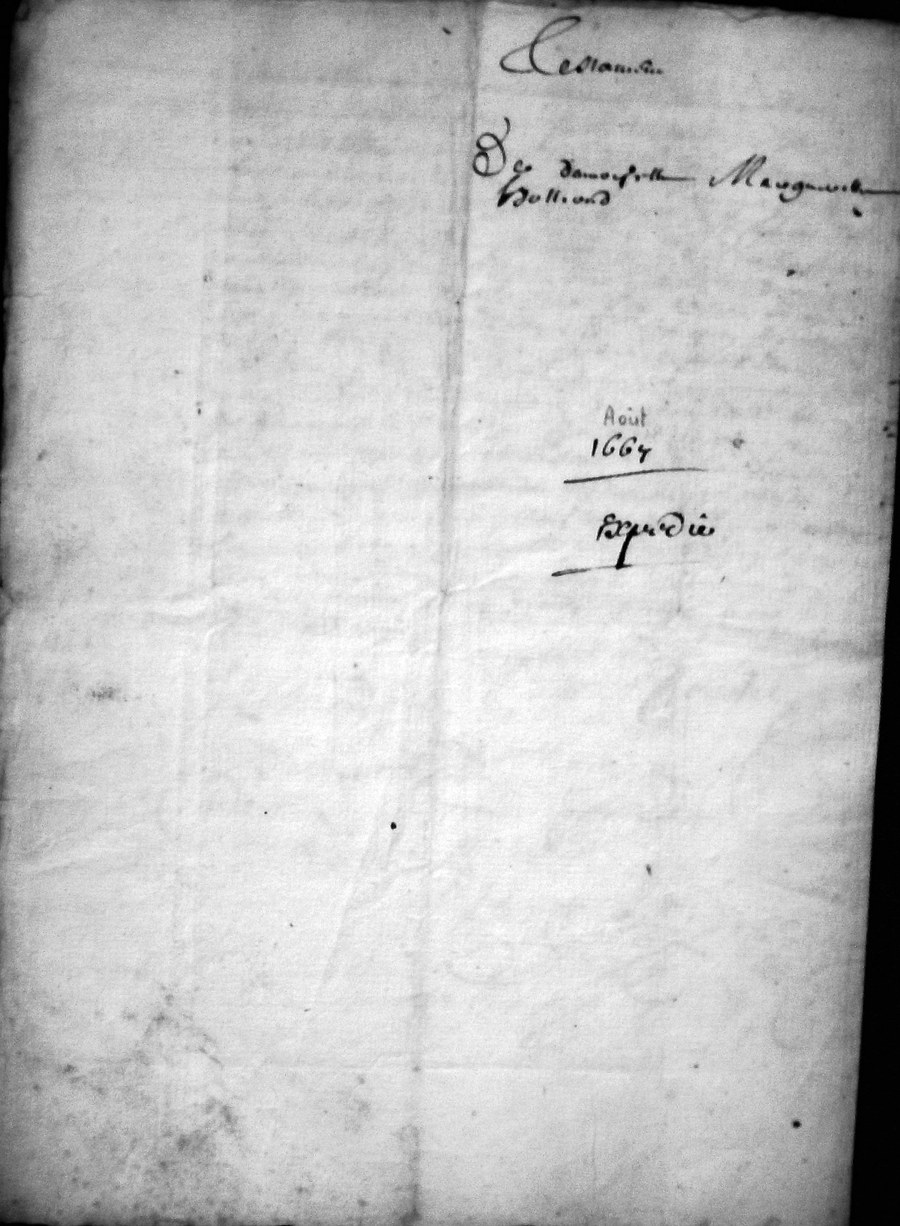 Testament
De damoiselle Margueritte
Août
1667
Expedié